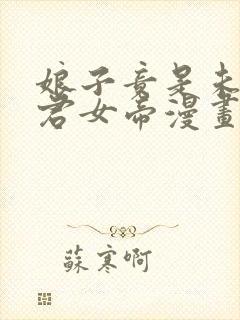 娘子竟是未
君女帝漫畫
蘇寒啊